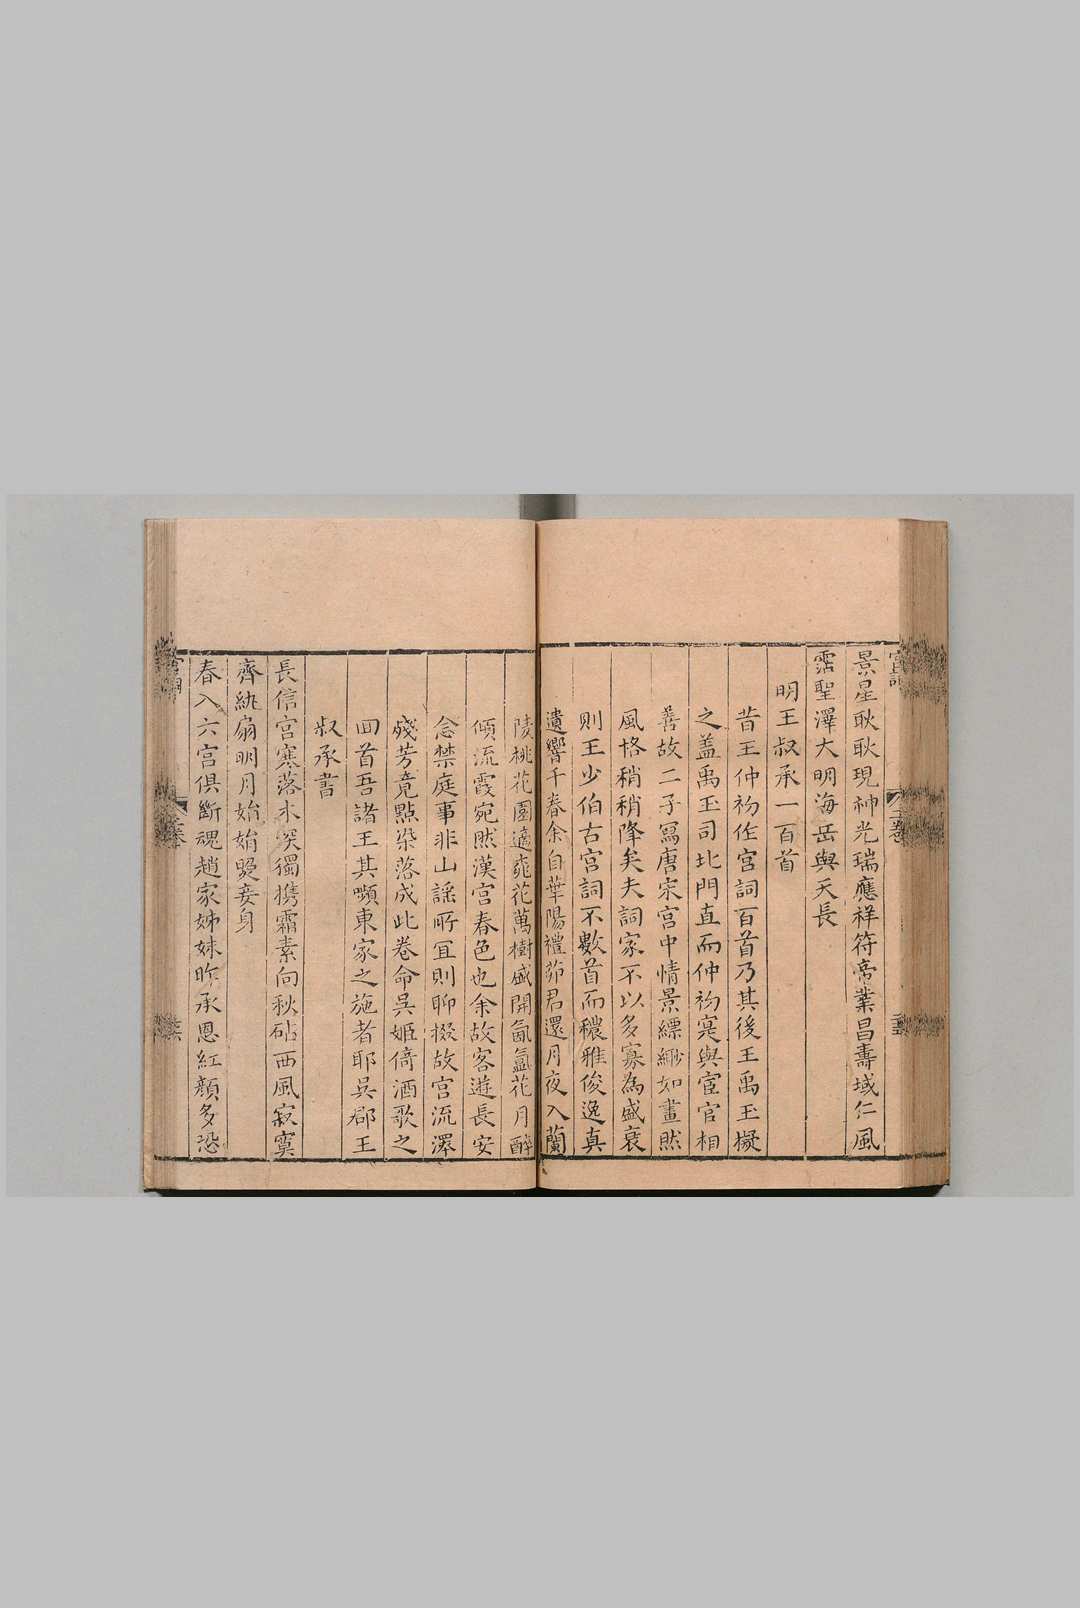 景星耿耿現神光瑞應祥符帝業昌壽域仁風
霑聖澤大明海岳與天長
明王叔承一百首
昔王仲初作宮詞百首乃其後王禹玉擬
之蓋禹玉司北門直而仲初寔與宦官相
善故二子冩唐宋宫中情景縹緲如畫然
風格稍稍降矣夫詞家不以多寡為盛衰
則王少伯古宮詞不數首而穠雅俊逸真
遺響千春余自華陽禮茆君還月夜入蘭
陵桃花園適靡花萬樹盛開氤氲花月醉
傾流霞宛然漢宮春色也余故客遊長安
念禁庭事非山謡所冝則聊掇故宮流澤
殘芳竟點染落成此卷命吳姬倚酒歌之
回首吾諸王其嚬東家之施者耶吳郡王
叔承書
長信宮寒落木哭獨携霜素向秋砧西風寂寞
齊紈扇明月始始曼妾身
春入六宮俱斷魂趙家姊妹昨承恩紅顏多恐